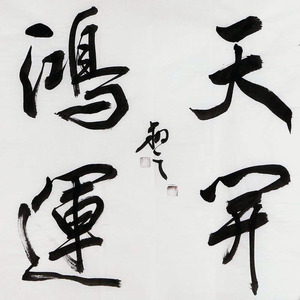 鴻天
運開